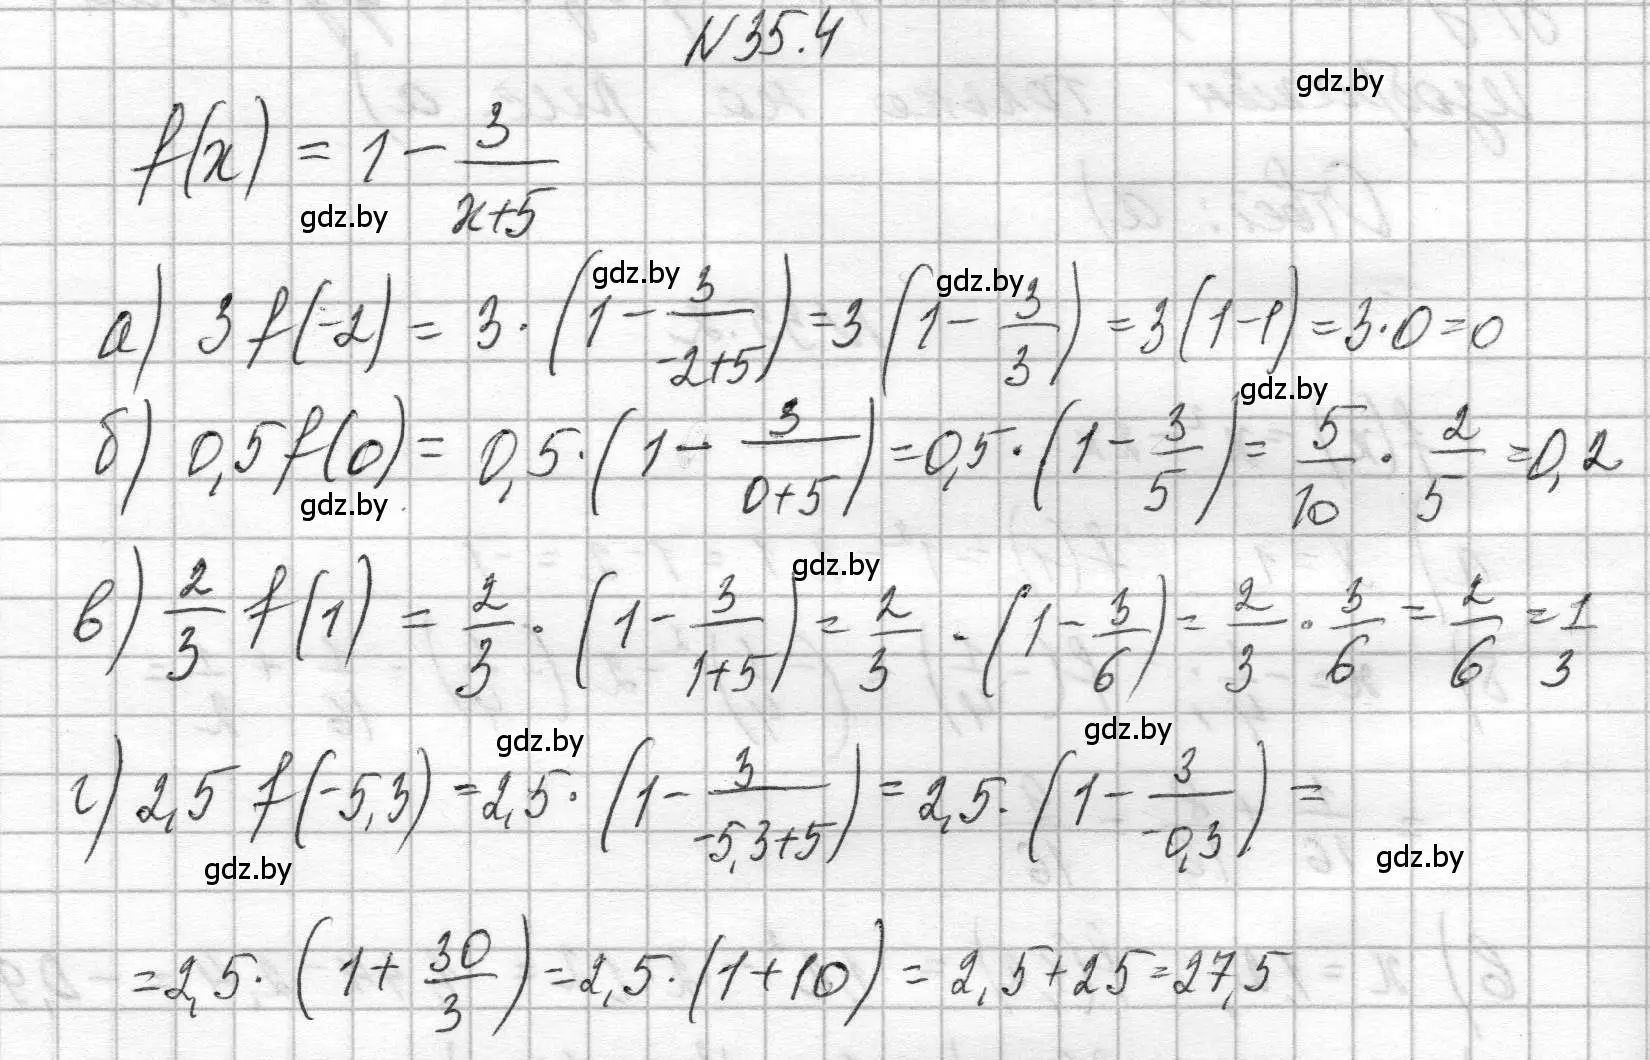 N 35.4
gdz.by
f(x) = 1 - 3/(x+5)
gdz.by
gdz.by gdz.by
а) 3 f(-2) = 3 · (1 - 3/(-2+5)) = 3 (1 - 3/3) = 3 (1-1) = 3·0 = 0
gdz.by
б) 0,5 f(0) = 0,5 · (1 - 3/(0+5)) = 0,5 · (1 - 3/5) = 5/10 · 2/5 = 0,2
gdz.by
gdz.by
в) 2/3 f(1) = 2/3 · (1 - 3/(1+5)) = 2/3 · (1 - 3/6) = 2/3 · 3/6 = 2/6 = 1/3
gdz.by gdz.by
г) 2,5 f(-5,3) = 2,5 · (1 - 3/(-5,3+5)) = 2,5 · (1 - 3/(-0,3)) =
gdz.by gdz.by
= 2,5 · (1 + 30/3) = 2,5 · (1+10) = 2,5+25 = 27,5